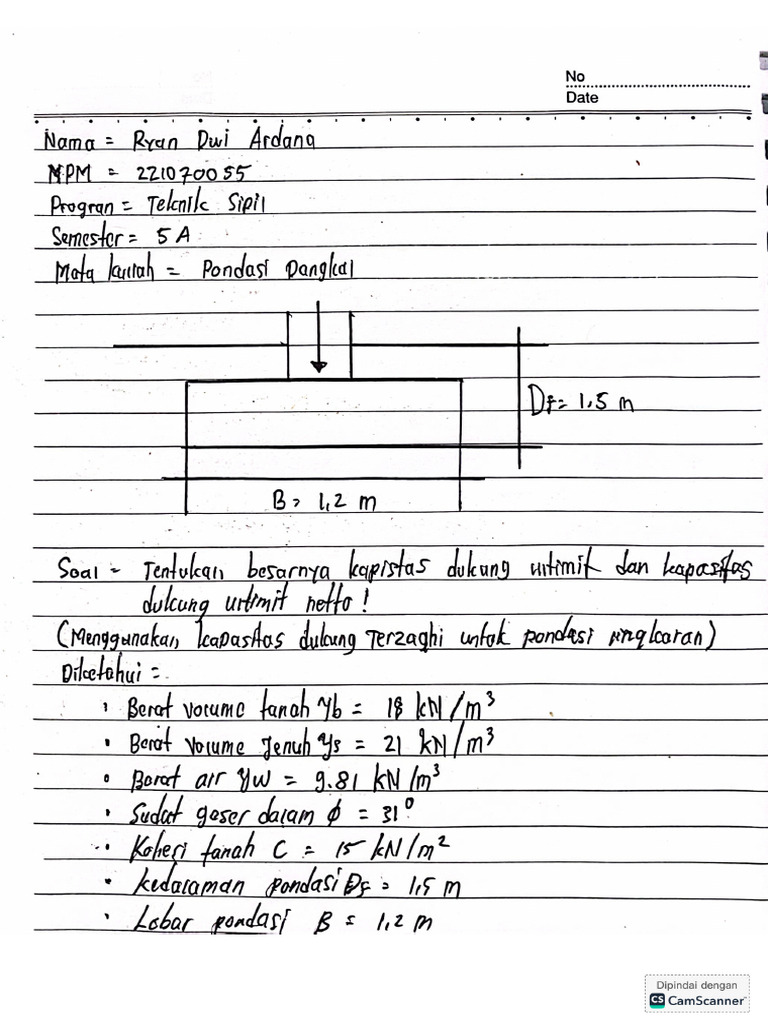 No
Date
Nama = Ryan Dwi Ardana
NPM = 221070055
Progran = Teknik Sipil
Semester = 5 A
Mata kuliah = Pondasi Dangkal
Df = 1,5 m
B = 1,2 m
Soal = Tentukan besarnya kapistas dukung ultimit dan kapasitas
dukung ultimit netto !
(Menggunakan kapasitas dukung Terzaghi untuk pondasi lingkaran)
Diketahui =
• Berat volume tanah γb = 18 kN/m³
• Berat volume Jenuh γs = 21 kN/m³
• Berat air γw = 9.81 kN/m³
• Sudut geser dalam φ = 31°
• Kohesi tanah C = 15 kN/m²
• kedalaman pondasi Df = 1,5 m
• Lebar pondasi B = 1,2 m
Dipindai dengan
CS CamScanner